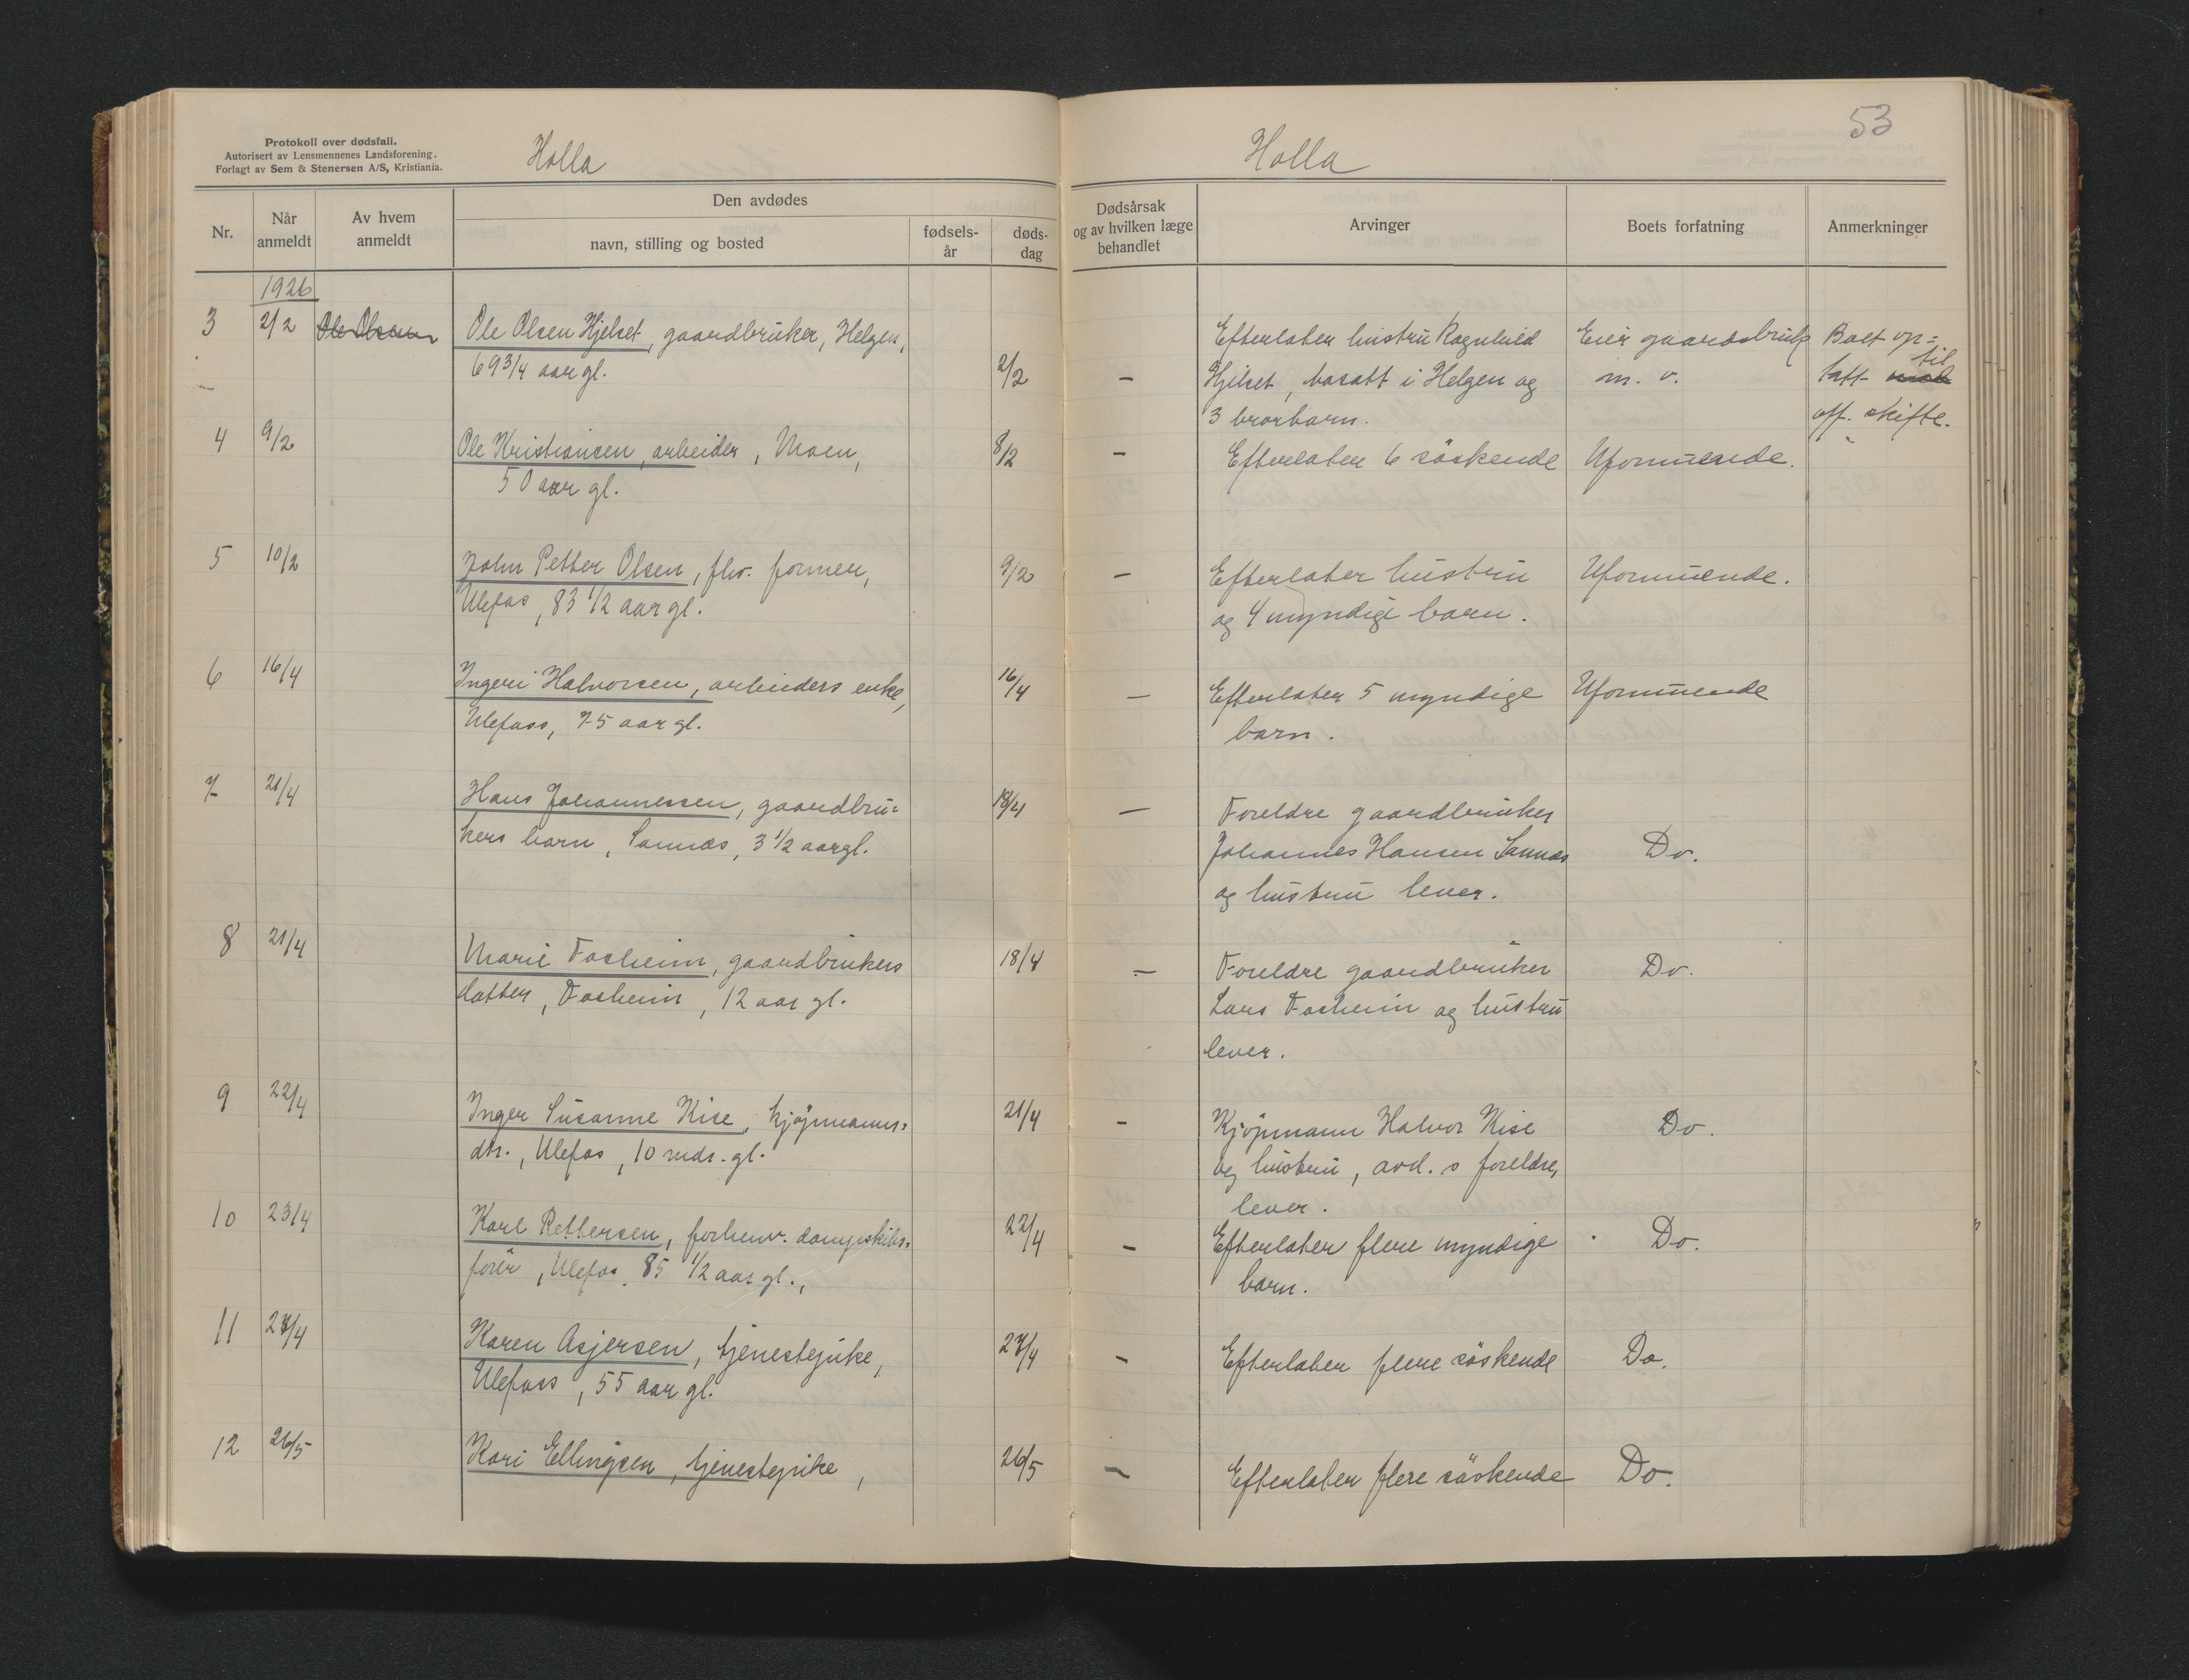 Protokoll over dødsfall.
Autorisert av Lensmennenes Landsforening.
Forlagt av Sem & Stenersen A/S, Kristiania.
Holla
Nr.
Når anmeldt
Av hvem anmeldt
Den avdødes
navn, stilling og bosted
fødsels-år
døds-dag
1926
3 2/2 Ole Olsen Ole Olsen Hjelset, gaardbruker, Helgen,
69 3/4 aar gl. 2/2
4 9/2 Ole Kristiansen, arbeider, Moen, 8/2
50 aar gl.
5 10/2 John Petter Olsen, fhv. former, 9/2
Ulefos, 83 1/2 aar gl.
6 16/4 Ingeri Halvorsen, arbeiders enke, 16/4
Ulefoss, 75 aar gl.
7 21/4 Hans Johannessen, gaardbru= 18/4
kers barn, Sannes, 3 1/2 aar gl.
8 21/4 Marie Fosheim, gaardbrukers 18/4
datter, Fosheim, 12 aar gl.
9 22/4 Inger Susanne Kise, kjøpmanns= 21/4
dtr., Ulefos, 10 mdr. gl.
10 23/4 Karl Pettersen, forhenv. dampskibs= 22/4
förer, Ulefos, 85 1/2 aar gl.,
11 27/4 Karen Asjersen, tjenestepike, 27/4
Ulefoss, 55 aar gl.
12 26/5 Kari Ellingsen, tjenestepike, 26/5
53
Holla
Dødsårsak
og av hvilken læge
behandlet
Arvinger
Boets forfatning
Anmerkninger
– Efterlater hustru Ragnhild Eier gaardsbruk Boet op=
Hjelset, bosatt i Helgen og m. v. tatt til
3 brorbarn. off. skifte.
– Efterlater 6 söskende Uformuende.
– Efterlater hustru Uformuende.
og 4 myndige barn.
– Efterlater 5 myndige Uformuende
barn.
– Foreldre gaardbruker
Johannes Hansen Sannes Do.
og hustru lever.
– Foreldre gaardbruker Do.
Lars Fosheim og hustru
lever.
– Kjøpmann Halvor Kise Do.
og hustru, avd.s foreldre,
lever.
– Efterlater flere myndige Do.
barn.
– Efterlater flere söskende Do.
– Efterlater flere söskende Do.